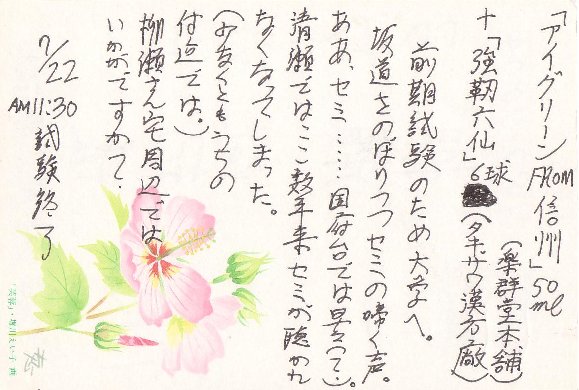 「アイグリーン FROM 信州」50ml
(薬群堂本舗)
+「強靭六仙」6球(タキザワ漢方廠)
前期試験のため大学へ。
坂道をのぼりつつセミの啼く声。
ああ、セミ……国府台では
清瀬ではここ数年来セミが聴かれ
なくなってしまった。
(少なくともうちの
付近では。)
柳瀬さん宅周辺では
いかがですかで
7/22
AM11:30 試験終了